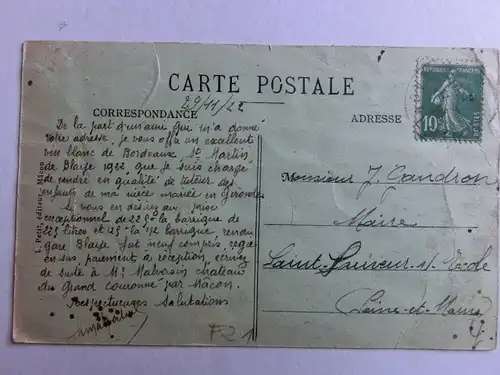 CARTE POSTALE
29/11/22
CORRESPONDANCE
ADRESSE
RÉPUBLIQUE FRANÇAISE
10c
De la part d'un ami qui m'a donné
votre adresse, je vous offre un excellent
vin blanc de Bordeaux St Martin
de Blaye 1922 que je suis chargé
de vendre en qualité de tuteur des
enfants de ma nièce mariée en Gironde
Si vous en désirez au prix
exceptionnel de 225 la barrique de
225 litres et 125 la 1/2 barrique rendu
gare Blaye fut neuf compris, régie
en sus, paiement à réception, écrivez
de suite à Mr Malvoisin chateau
du Grand couronne par Mâcon.
Respectueuses Salutations
L. Petit, éditeur, Mâcon
Monsieur J. Gandron
Maire
Saint Sauveur s/ Ecole
Seine-et-Marne
F21